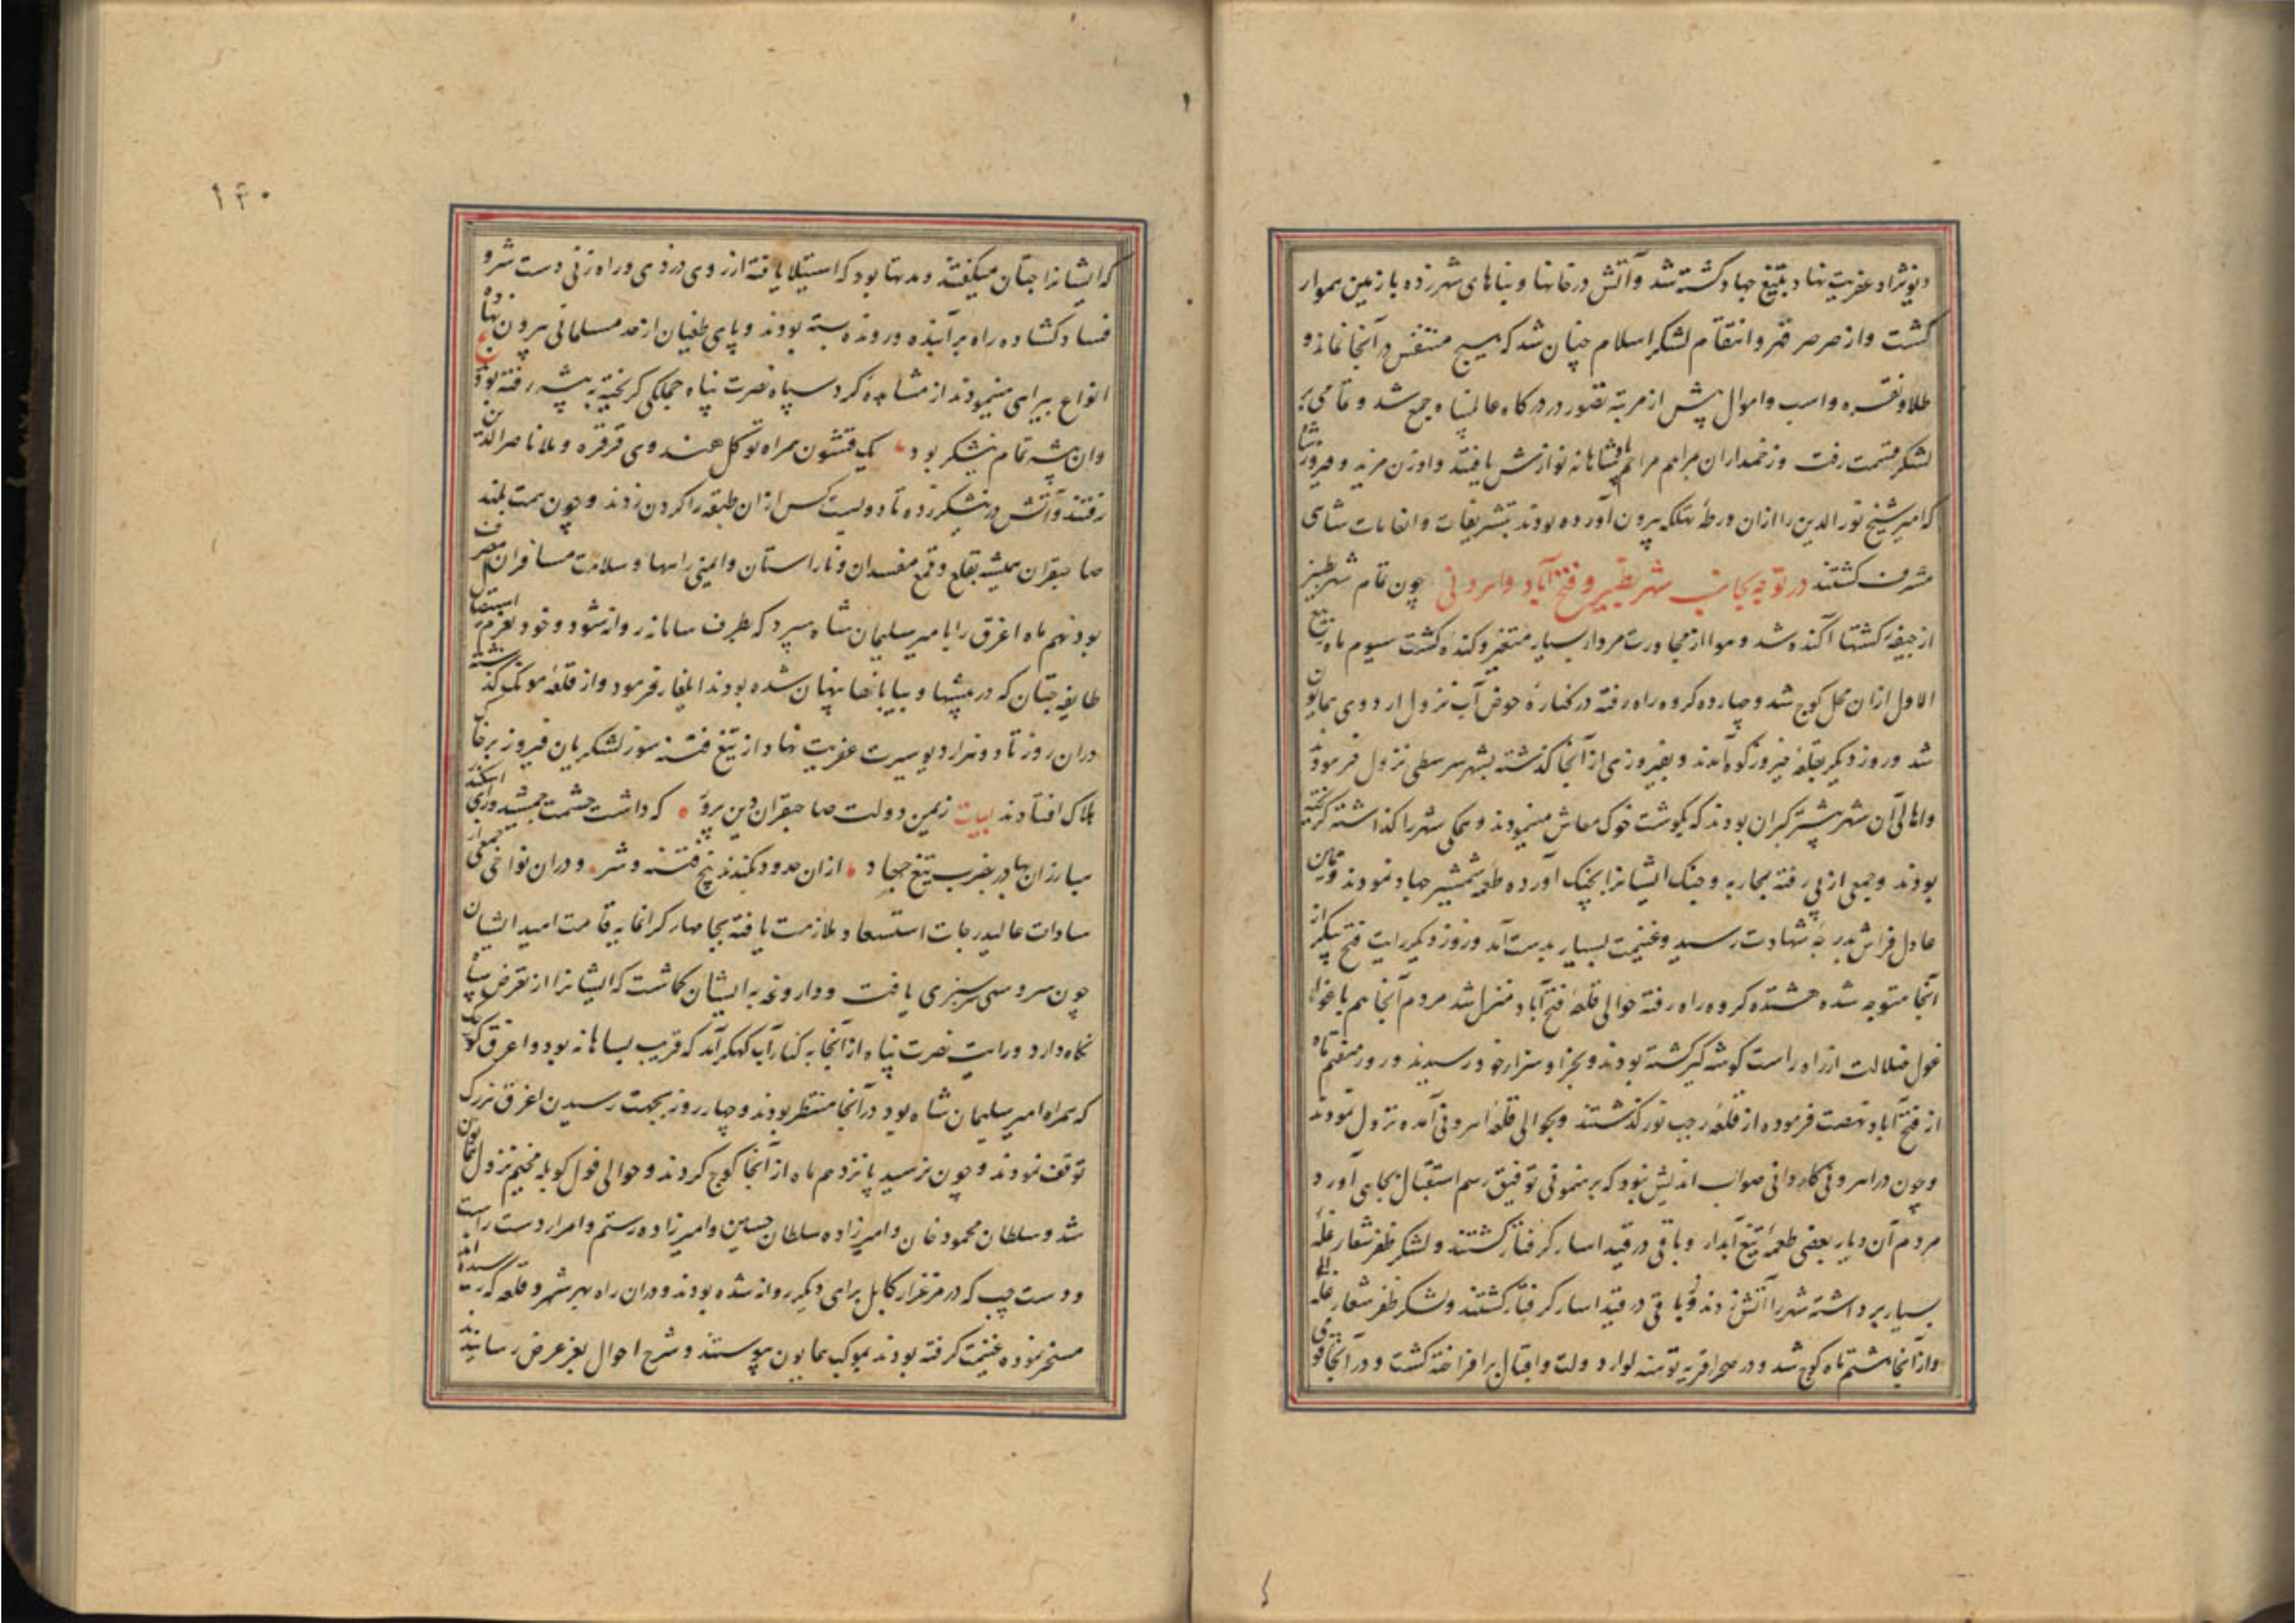 دیونژاد عفریت نهاد بتیغ جهاد کشته شد و آتش در خانها و بناهای شهر زده با زمین هموار
کشت و از صرصر قهر و انتقام لشکر اسلام چنان شد که هیچ متنفس در آنجا نماند و
طلا و نقره و اسب و اموال بیش از مرتبه تصور در درکاه عالمپناه جمع شد و تمامی بر
لشکر قسمت رفت و زخمداران بمراهم مراحم پادشاهانه نوازش یافتند و اوزن مزید و فیروز
که امیر شیخ نور الدین را ازان ورطهٔ مهلکه بیرون آورده بودند بتشریفات و انعامات شاهی
مشرف کشتند در توجه بجانب شهر بطنیر و فتح آباد و اهرونی چون تمام شهر بطنیر
از جیفه کشتها آکنده شد و هوا از مجاورت مردار بسیار متغیر و کنده کشت سیوم ماه ربیع
الاول ازان محل کوچ شد و چهارده کروه راه رفته در کنارهٔ حوض آب نزول اردوی همایون
شد و روز دیکر بقلعهٔ فیروز کوه آمدند و بفیروزی از آنجا کذشته بشهر سرسطی نزول فرمود
و اهالی آن شهر بیشتر کبران بودند که بکوشت خوک معاش مینمودند و همکی شهر را کذاشته کریخته
بودند و جمعی از پی رفته بمحاربه و جنک ایشانرا بچنک آورده طعمه شمشیر جهاد نمودند و همین
عادل فراش بدرجهٔ شهادت رسید و غنیمت بسیار بدست آمد و روز دیکر رایت فتح پیکر از
آنجا متوجه شده هشتده کروه راه رفته حوالی قلعهٔ فتح آباد منزل شد مردم آنجا هم باغواء
غول ضلالت از راه راست کوشه کیر کشته بودند و بجزا و سزای خود رسیدند و روز هفتم ماه
از فتح آباد نهضت فرموده از قلعهٔ رجب نور کذشتند و بحوالی قلعهٔ اهرونی آمده نزول نمودند
و چون در اهرونی کاردانی صواب اندیش نبود که برهنمونی توفیق رسم استقبال بجای آورد
مردم آن دیار بعضی طعمهٔ تیغ آبدار و باقی در قید اسار کرفتار کشتند و لشکر ظفر شعار غله
بسیار برداشته شهر را آتش زدند و باقی در قید اسار کرفتار کشتند و لشکر ظفر شعار غله
و از آنجا هشتم ماه کوچ شد و در صحرا قریه توهنه لواء دولت و اقبال برافراخته کشت و در آنجا قومی
۱۴۰
که ایشانرا جتان میکفتند و مدتها بود که استیلا یافته از روی دزدی و راه زنی دست شر و
فساد کشاده راه بر آینده و رونده بسته بودند و پای طغیان از حد مسلمانی بیرون نهاده
انواع بیراهی مینمودند از مشاهده کرد سپاه نصرت پناه جملکی کریخته به بیشه رفته بودند
و ان بیشه تمام نیشکر بود یک قشون همراه توکل هندوی قرقره و ملا ناصر الدین
رفتند و آتش در نیشکر زده تا دویست کس ازان طبقه را کردن زدند و چون همت بلند
صاحبقران همیشه بقلع و قمع مفسدان و ناراستان و ایمنی راهها و سلامت مسافران مصروف
بود نهم ماه اغرق را بامیر سلیمان شاه سپرد که بطرف سامانه روانه شود و خود بعزم استیصال
طایفه جتان که در بیشها و بیابانها پنهان شده بودند ایلغار فرمود و از قلعهٔ مونک کذشته
دران روز تا دو هزار دیو سیرت عفریت نهاد از تیغ فتنه سوز لشکریان فیروز بر خاک
هلاک افتادند ابیات زیمن دولت صاحبقران دین پرور که داشت حشمت جمشید و رای اسکندر
مبارزان بهادر بضرب تیغ جهاد ازان حدود بکندند بیخ فتنه و شر و دران نواحی جمعی از
سادات عالیدرجات استسعاد ملازمت یافته بجامهای کرانمایه قامت امید ایشان
چون سرو سهی سرسبزی یافت و داروغه به ایشان کماشت که ایشانرا از تعرض سپاه
نکاه دارد و رایت نصرت پناه از آنجا به کنار آب کهکر آمد که قریب بسامانه بود و اغرق کوچک
که همراه امیر سلیمان شاه بود در آنجا منتظر بودند و چهار روز بجهت رسیدن اغرق بزرک
توقف نمودند و چون برسید پانزدهم ماه از آنجا کوچ کردند و حوالی فول کوبله مخیم نزول همایون
شد و سلطان محمود خان و امیرزاده سلطان حسین و امیرزاده رستم و امراء دست راست
و دست چپ که در مرغزار کابل براهی دیکر روانه شده بودند و دران راه بهر شهر و قلعه که رسیده اند
مسخر نموده غنیمت کرفته بودند بموکب همایون پیوستند و شرح احوال بعز عرض رسانیدند